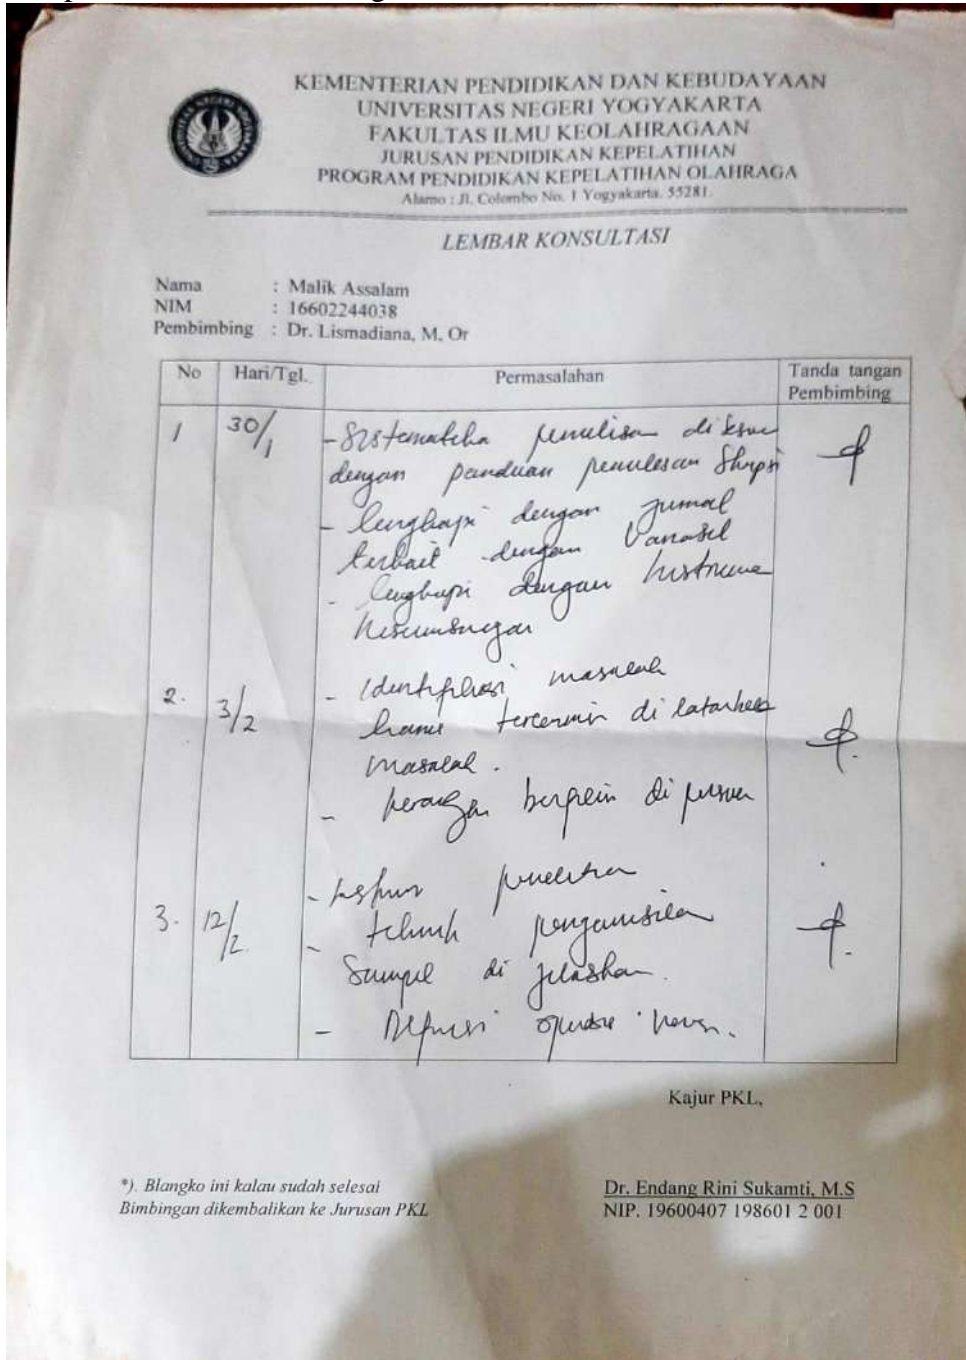 KEMENTERIAN PENDIDIKAN DAN KEBUDAYAAN
UNIVERSITAS NEGERI YOGYAKARTA
FAKULTAS ILMU KEOLAHRAGAAN
JURUSAN PENDIDIKAN KEPELATIHAN
PROGRAM PENDIDIKAN KEPELATIHAN OLAHRAGA
Alamo : Jl. Colombo No. 1 Yogyakarta. 55281.
LEMBAR KONSULTASI
Nama : Malik Assalam
NIM : 16602244038
Pembimbing : Dr. Lismadiana, M. Or
No Hari/Tgl. Permasalahan Tanda tangan
Pembimbing
1 30/1 - Sistematika penulisan
dengan panduan penulisan Skripsi
- lengkapi dengan jurnal
terkait dengan Variabel
- lengkapi dengan
2. 3/2 - Identifikasi masalah
harus tercermin di
masalah.
- berpikir di
3. 12/2 - penelitian
- teknik pengambilan
Sampel di jelaskan.
- Definisi
Kajur PKL,
*). Blangko ini kalau sudah selesai
Bimbingan dikembalikan ke Jurusan PKL
Dr. Endang Rini Sukamti, M.S
NIP. 19600407 198601 2 001